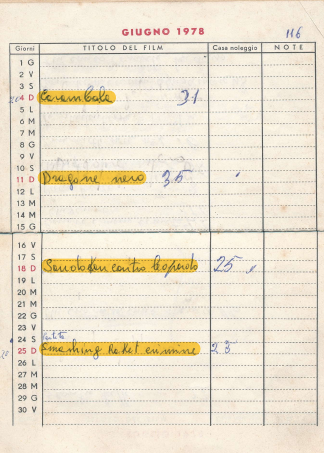 GIUGNO 1978 116
Giorni TITOLO DEL FILM Casa noleggio NOTE
1 G
2 V
3 S
4 D Carambola 31
5 L
6 M
7 M
8 G
9 V
10 S
11 D Dragone nero 35
12 L
13 M
14 M
15 G
16 V
17 S
18 D Sandokan contro leopardo 25
19 L
20 M
21 M
22 G
23 V
24 S
25 D Smashing Racket crimine 23
26 L
27 M
28 M
29 G
30 V